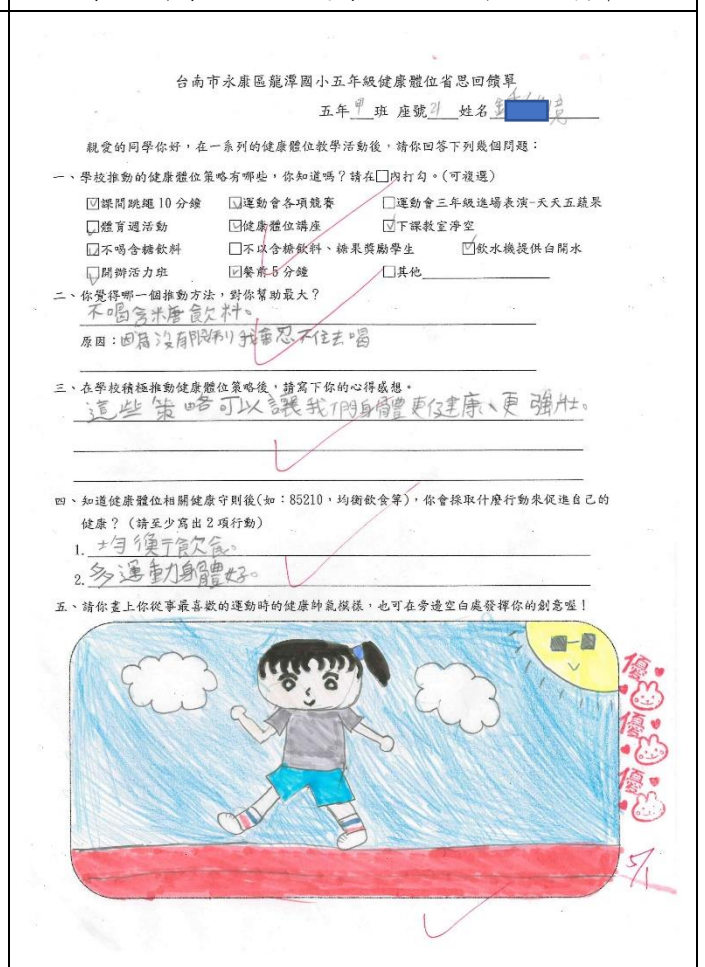 台南市永康區龍潭國小五年級健康體位省思回饋單
五年甲班 座號21 姓名
親愛的同學你好,在一系列的健康體位教學活動後,請你回答下列幾個問題:
一、學校推動的健康體位策略有哪些,你知道嗎?請在□內打勾。(可複選)
☑課間跳繩10分鐘 ☑運動會各項競賽 □運動會三年級進場表演-天天五蔬果
☑體育週活動 ☑健康體位講座 ☑下課教室淨空
☑不喝含糖飲料 □不以含糖飲料、糖果獎勵學生 ☑飲水機提供白開水
☑開辦活力班 ☑餐前5分鐘 □其他
二、你覺得哪一個推動方法,對你幫助最大?
不喝含糖飲料。
原因:因為沒有限制我會忍不住去喝
三、在學校積極推動健康體位策略後,請寫下你的心得感想。
這些策略可以讓我們身體更健康、更強壯。
四、知道健康體位相關健康守則後(如:85210,均衡飲食等),你會採取什麼行動來促進自己的
健康?(請至少寫出2項行動)
1. 均衡飲食。
2. 多運動身體好。
五、請你畫上你從事最喜歡的運動時的健康帥氣模樣,也可在旁邊空白處發揮你的創意喔!
優
優
優
5/1